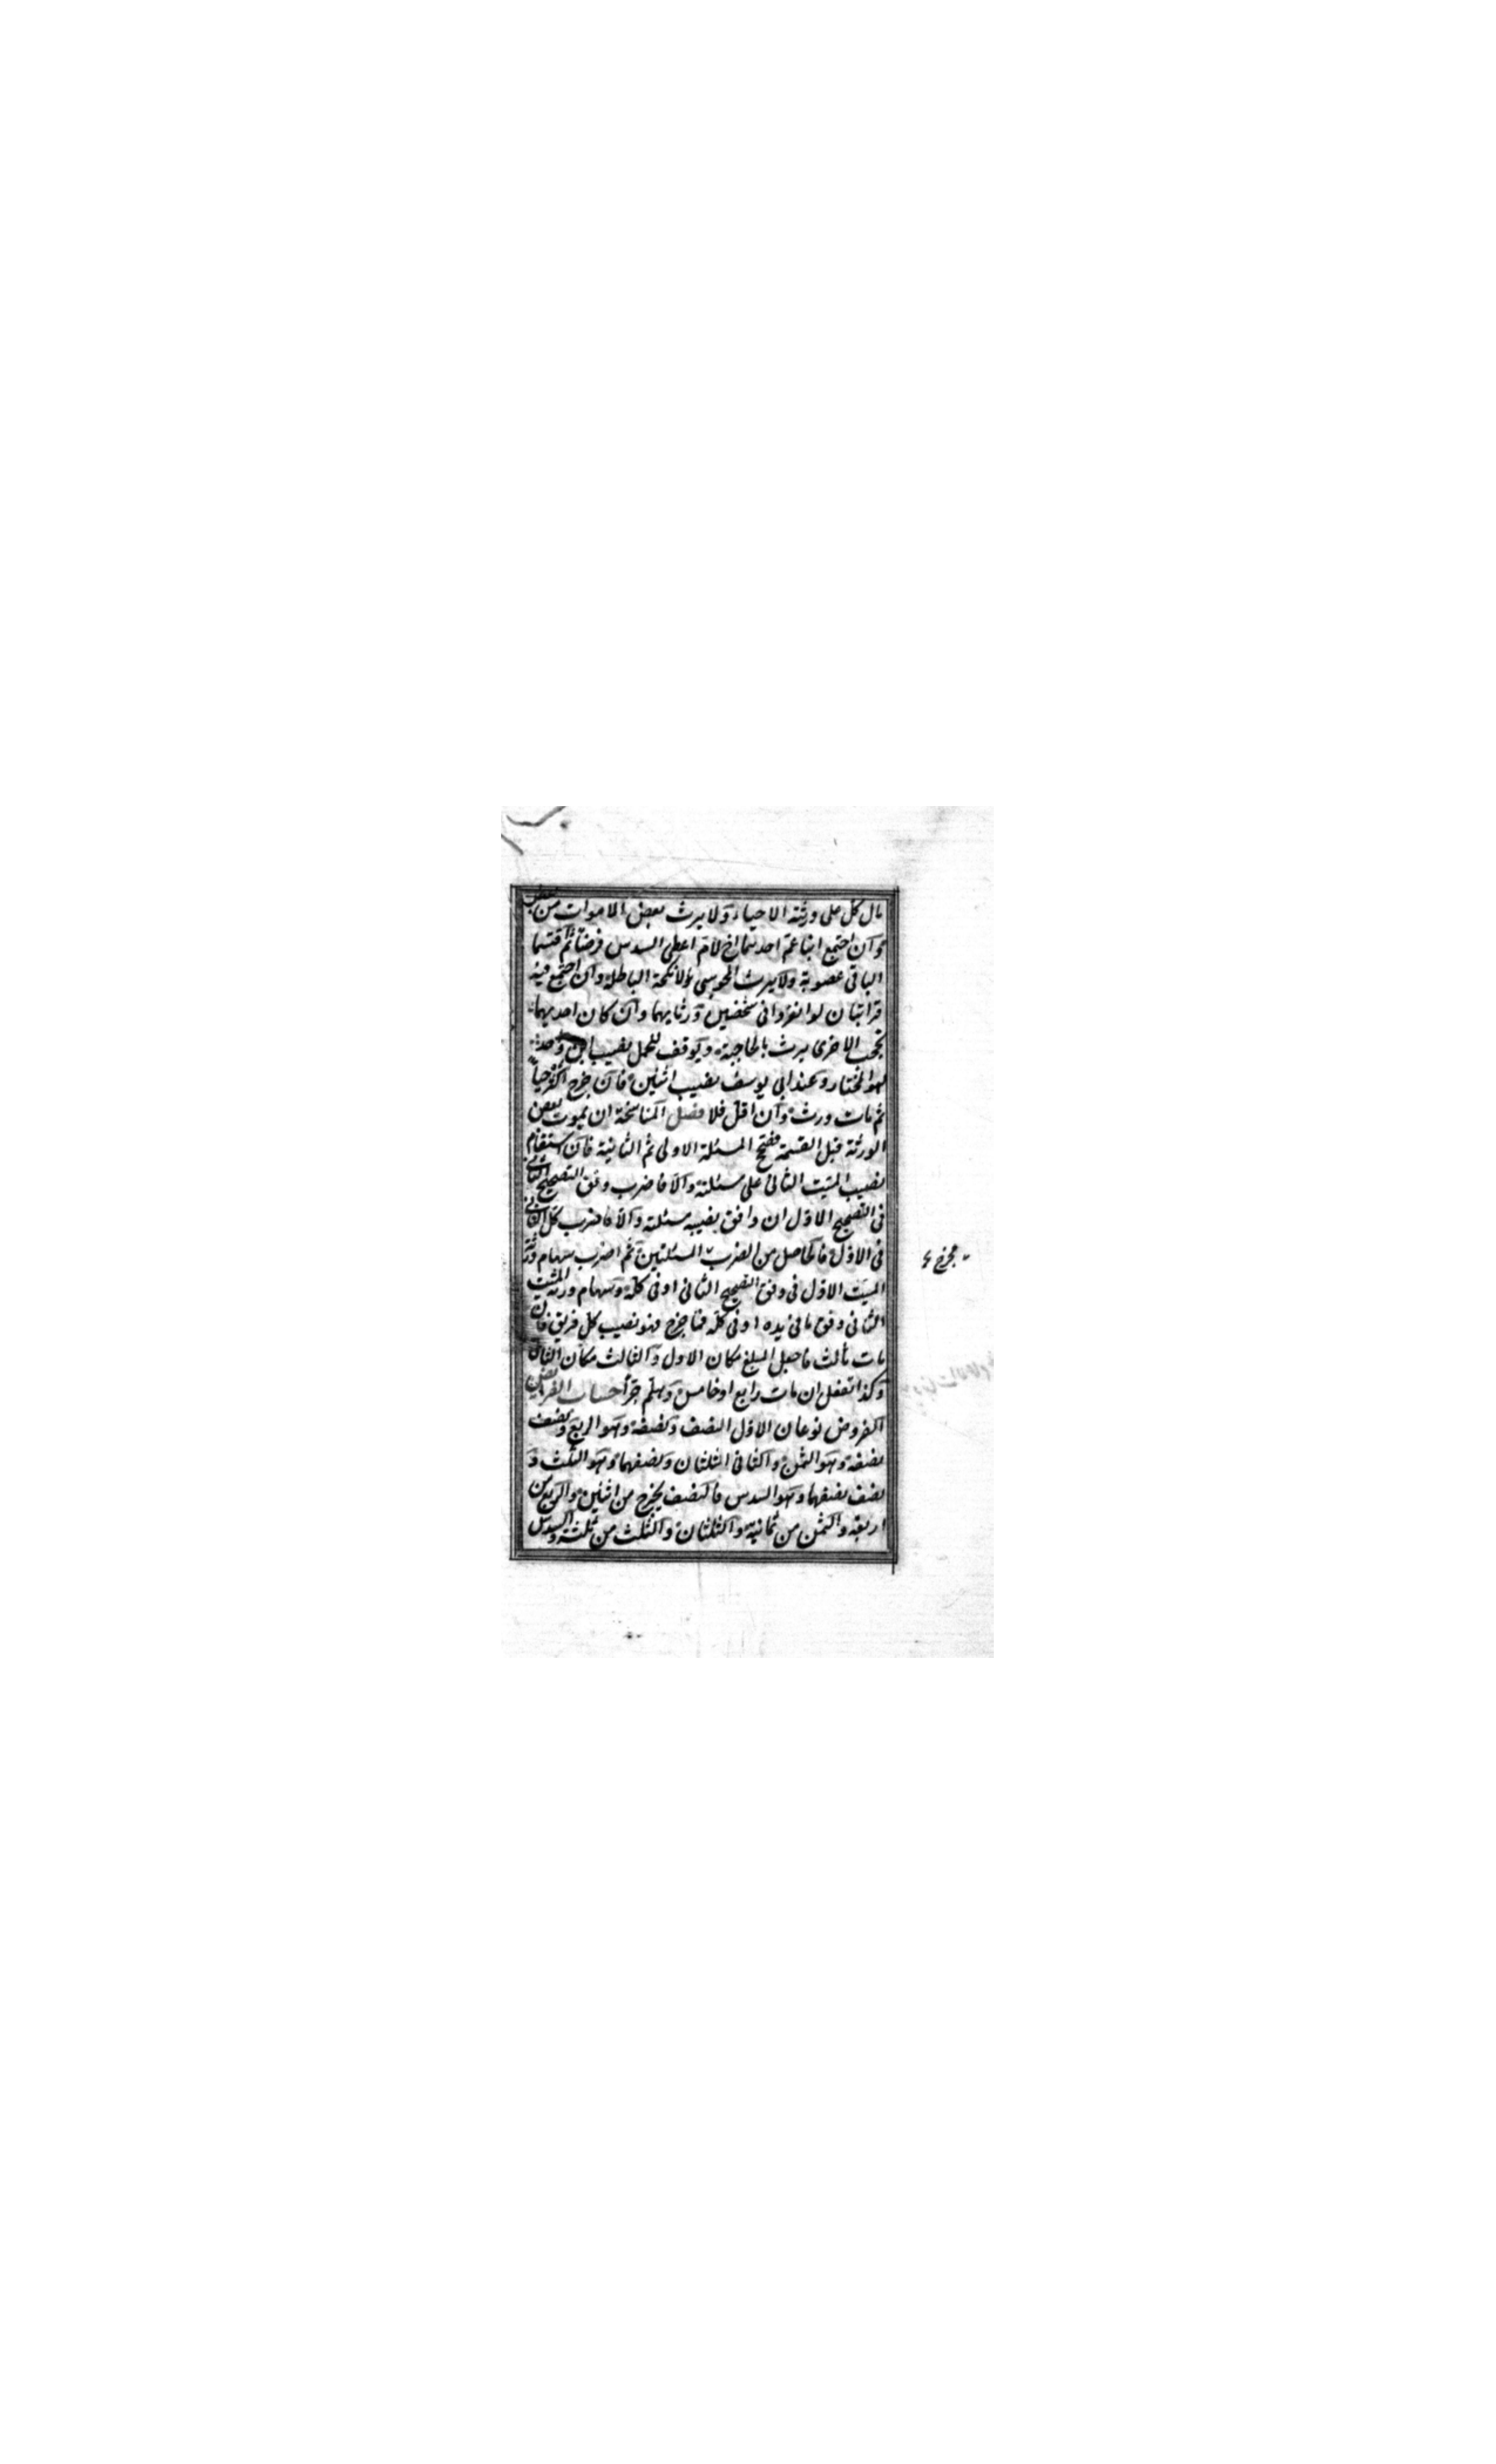 مال كل على ورثته الاحياء ولا يرث بعض الاموات من بعض
وان اجتمع ابنا عم احدهما اخ لام اعطى السدس فرضا ثم اقتسما
الباقى عصوبة ولا يرث المجوسى بالانكحة الباطلة وان اجتمع فيه
قرابتان لو انفردا فى شخصين ورث بهما وان كان احديهما
تحجب الاخرى يرث بالحاجبة ويوقف للحمل نصيب ابن واحد
هو المختار وعند ابى يوسف نصيب اثنين فان خرج اكثره حيا
ثم مات ورث وان اقل فلا فصل المناسخة ان يموت بعض
الورثة قبل القسمة فصحح المسئلة الاولى ثم الثانية فان استقام
نصيب الميت الثانى على مسئلته والا فاضرب وفق التصحيح الثانى
فى التصحيح الاول ان وافق نصيبه مسئلته والا فاضرب كل الثانى
فى الاول فالحاصل من الضرب المسئلتين ثم اضرب سهام ورثة
الميت الاول فى وفق التصحيح الثانى او فى كله وسهام ورثة الميت
الثانى وفق ما فى يده او فى كله فما خرج فهو نصيب كل فريق فان
مات ثالث فاجعل المبلغ مكان الاول والثالث مكان الثانى
وكذا تفعل ان مات رابع او خامس وهلم جرا حساب الفرايض
الفروض نوعان الاول النصف ونصفه وهو الربع ونصف
نصفه وهو الثمن والثانى الثلثان ونصفهما وهو الثلث و
نصف نصفهما وهو السدس فالنصف يخرج من اثنين والربع من
اربعة والثمن من ثمانية والثلثان والثلث من ثلثة والسدس
مخرج